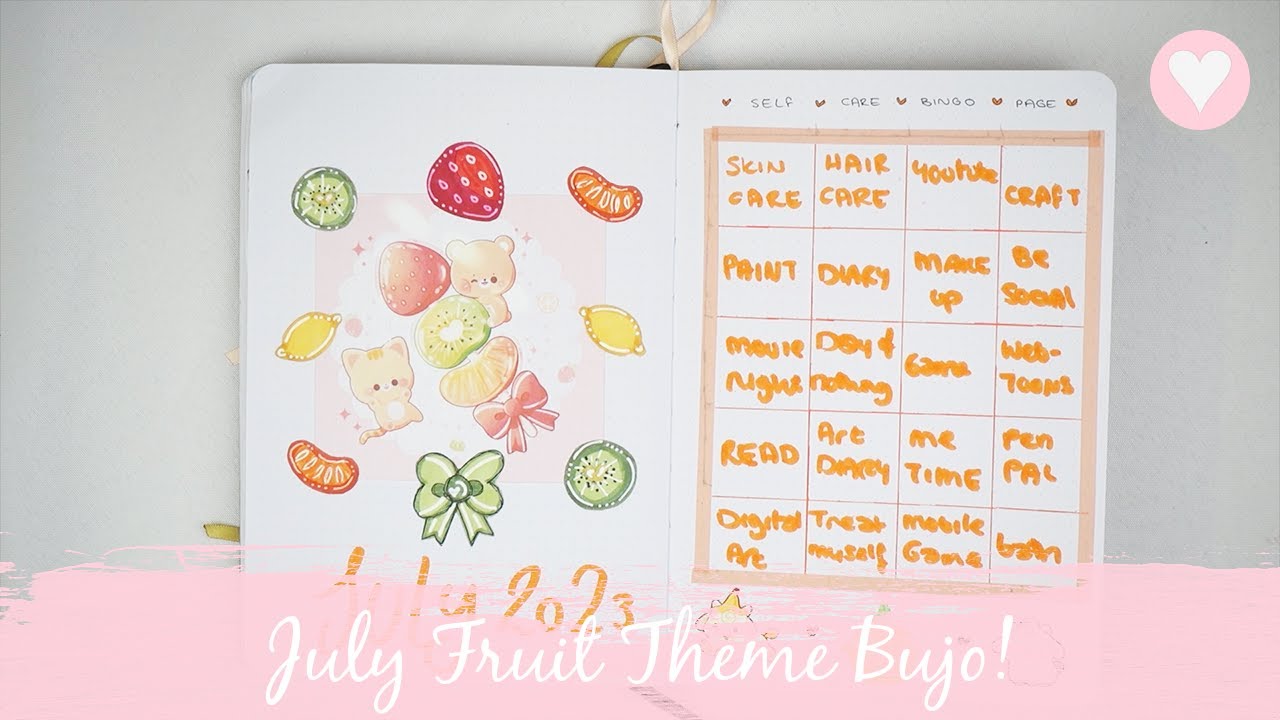 SELF CARE BINGO PAGE
SKIN
CARE
HAIR
CARE
Youtube
CRAFT
PAINT
DIARY
MAKE
up
Be
Social
movie
night
Day of
nothing
Game
Web-
TOONS
READ
Art
DIARY
me
TIME
pen
PAL
Digital
Art
Treat
myself
mobile
Game
July 2023
July Fruit Theme Bujo!